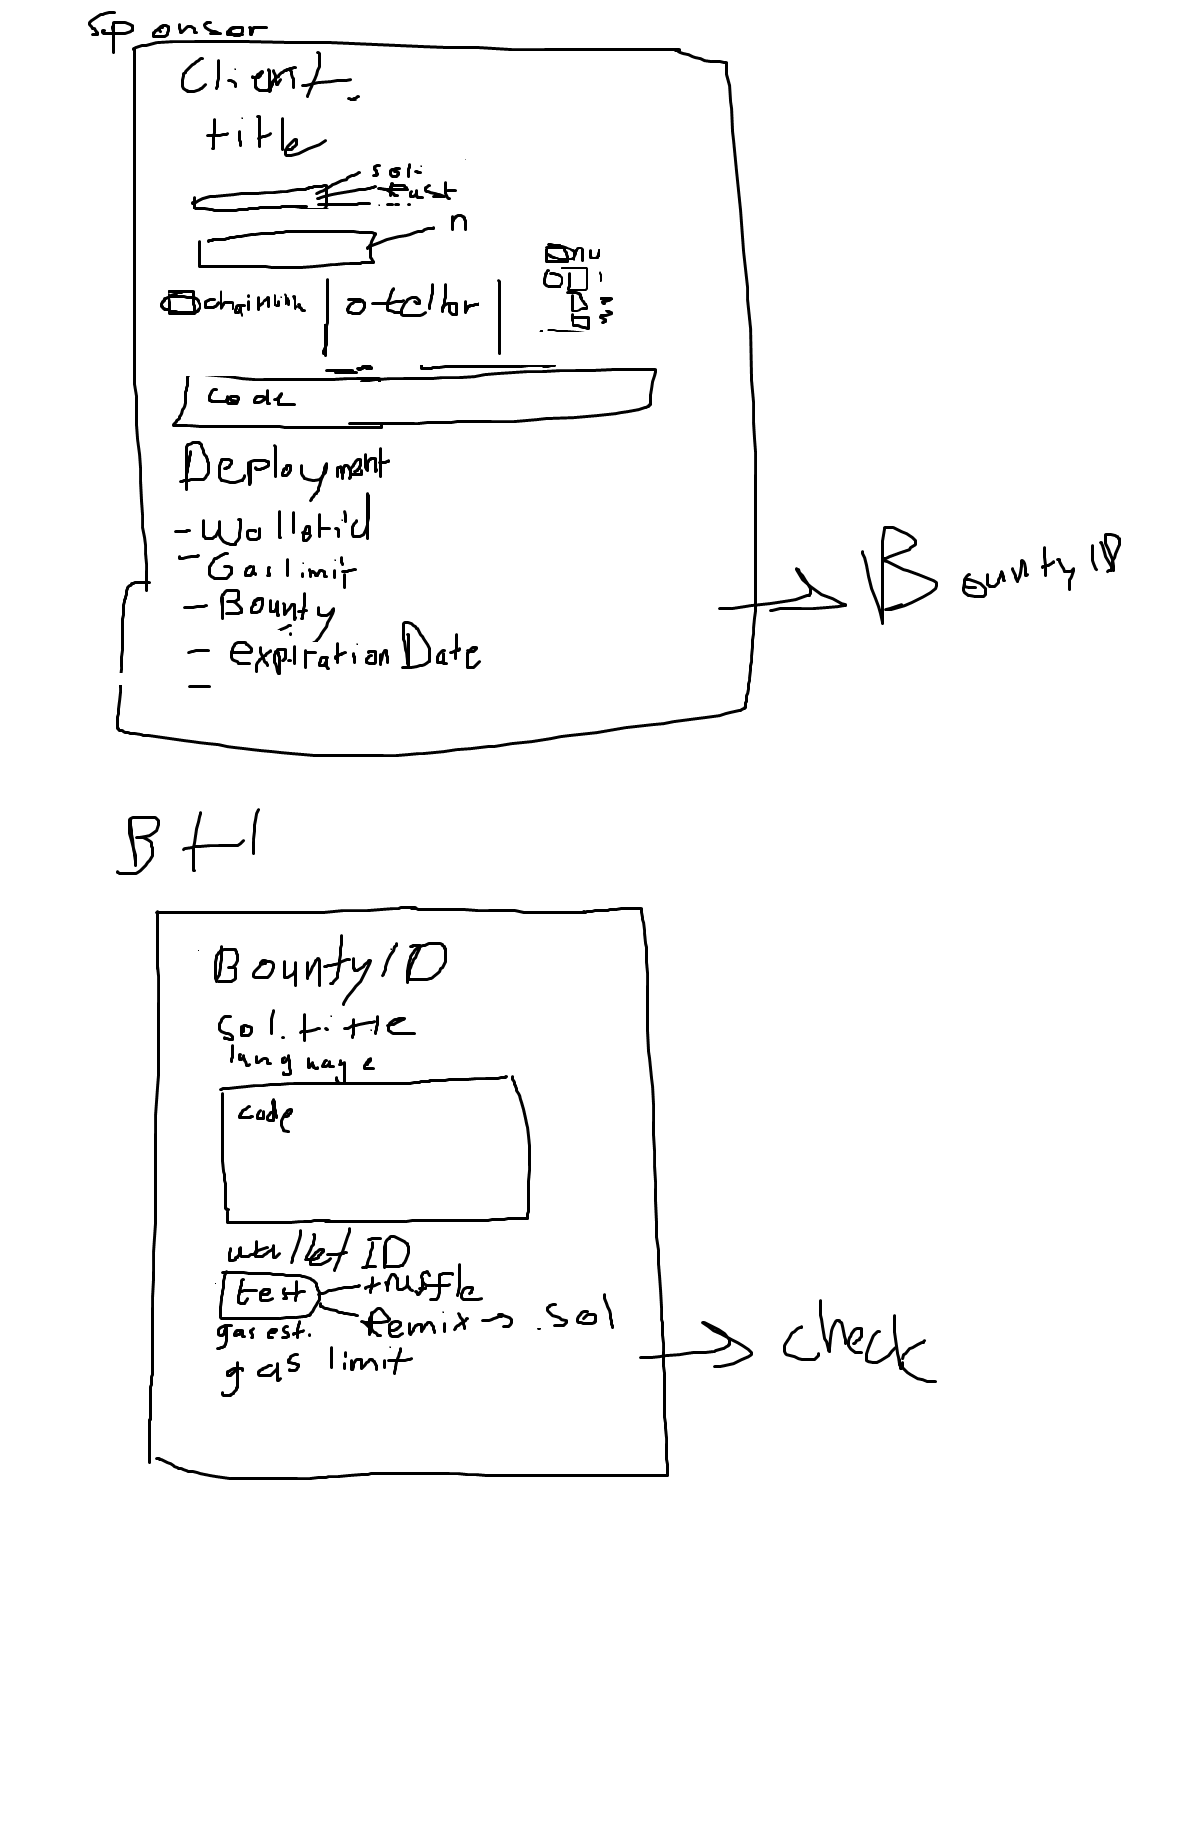 Sponsor
Client.
title
sol.
Rust
n
chainlink
o-tellor
code
Deployment
- Walletid
- Gas limit
- Bounty
- expiration Date
-
Bounty ID
BH
Bounty ID
sol. title
language
code
wallet ID
test
truffle
Remix → .sol
gas est.
gas limit
check